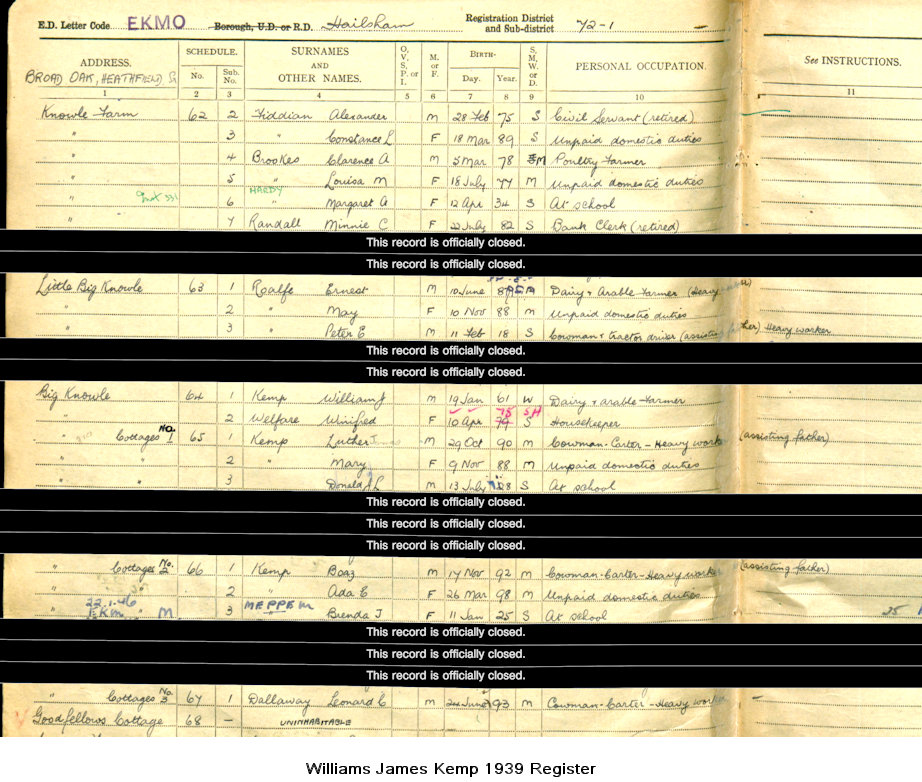 E.D. Letter Code EKMO Borough, U.D. or R.D. Hailsham Registration District and Sub-district 72-1
ADDRESS. SCHEDULE. SURNAMES AND OTHER NAMES. O, V, S, P, or I M. or F. BIRTH- S, M, W, or D. PERSONAL OCCUPATION. See INSTRUCTIONS.
No. Sub. No. Day. Year.
BROAD OAK, HEATHFIELD
1 2 3 4 5 6 7 8 9 10 11
Knowle Farm 62 2 Fiddian Alexander M 28 Feb 75 S Civil Servant (retired)
" 3 " Constance L F 18 Mar 89 S Unpaid domestic duties
" 4 Brookes Clarence A M 5 Mar 78 M Poultry Farmer
" 5 " Louisa M F 18 July 77 M Unpaid domestic duties
HARDY
" 6 " Margaret A F 12 Apr 34 S At school
" 7 Randall Minnie C F 22 July 82 S Bank Clerk (retired)
This record is officially closed.
This record is officially closed.
Little Big Knowle 63 1 Roalfe Ernest M 10 June Dairy & Arable Farmer (Heavy
" 2 " May F 10 Nov 88 M Unpaid domestic duties
" 3 " Peter E M 11 Feb 18 S Cowman & tractor driver (assisting father) Heavy worker
This record is officially closed.
This record is officially closed.
Big Knowle 64 1 Kemp William J M 19 Jan 61 W Dairy & arable Farmer
75 SH
" 2 Welfare Winifred F 10 Apr 79 S Housekeeper
" Cottages No. 1 65 1 Kemp Luther M 29 Oct 90 M Cowman-Carter - Heavy work (assisting father)
" " 2 " Mary F 9 Nov 88 M Unpaid domestic duties
" " 3 Donald L M 13 July 28 S At school
This record is officially closed.
This record is officially closed.
This record is officially closed.
" Cottages No. 2 66 1 Kemp Boaz M 17 Nov 92 M Cowman-Carter-Heavy worker (assisting father)
" " 2 " Ada E F 26 Mar 98 M Unpaid domestic duties
22.1.46 MEPPEM
" EKM " M 3 Brenda J F 11 Jan 25 S At school 25
This record is officially closed.
This record is officially closed.
This record is officially closed.
" Cottages No. 3 67 1 Dallaway Leonard C M 24 June 93 M Cowman-Carter-Heavy worker
Goodfellows Cottage 68 - UNINHABITABLE
Williams James Kemp 1939 Register